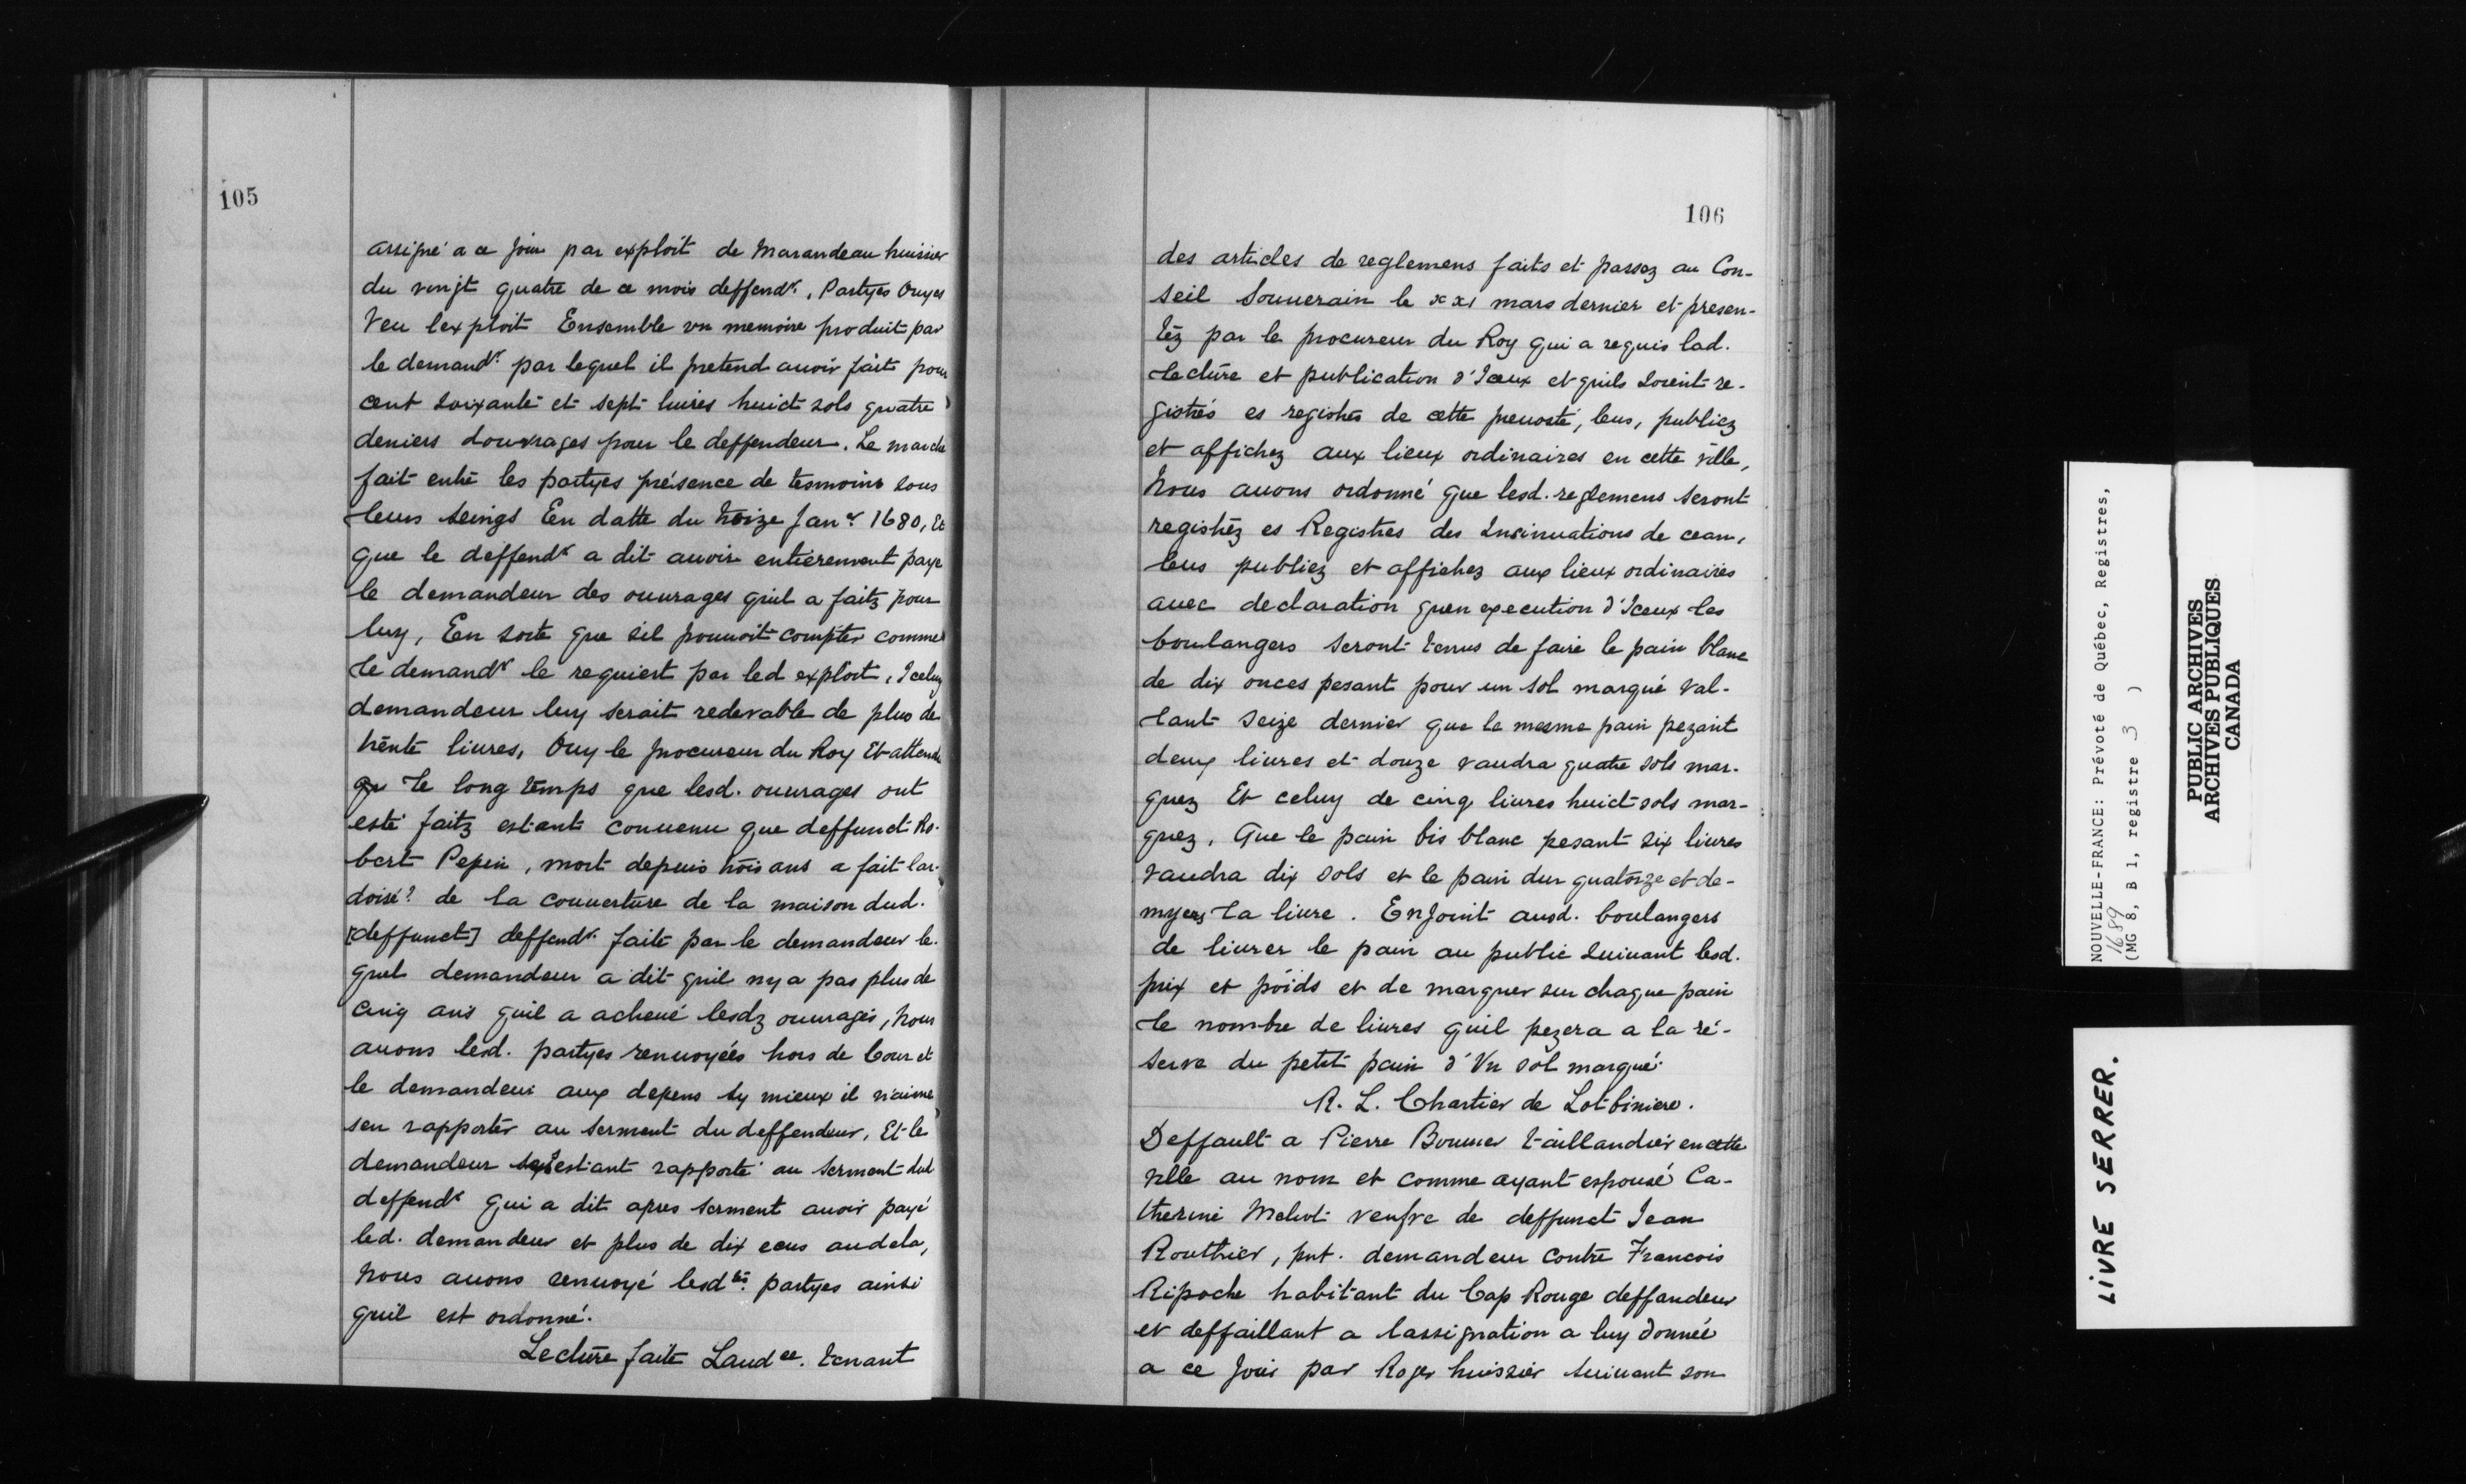 105
assigné a ce jour par exploit de Marandeau huissier
du vingt quatre de ce mois deffendr. Partyes Ouyes
Veu lexploit Ensemble un memoire produit par
le demandr. par lequel il pretend auoir fait pour
cent soixante et sept liures huict sols quatre
deniers douvrages pour le deffendeur. Le marche
fait entre les partyes présence de tesmoins sous
leurs seings En datte du treize Janer 1680, Et
que le deffendr a dit auoir entierement paye
le demandeur des ouurages quil a faitz pour
luy, En sorte que sil pouuoit compter comme
le demandr le requiert par led exploit, Iceluy
demandeur luy serait redevable de plus de
trente liures, Ouy le procureur du Roy Et attendu
qu le long temps que lesd. ouurages ont
esté faitz estant conuenu que deffunct Ro-
bert Pepin, mort depuis trois ans a fait lar-
doisé? de la couuerture de la maison dud.
[deffunct] deffendr. faite par le demandeur le-
quel demandeur a dit quil ny a pas plus de
cinq ans quil a acheué lesdz ouurages, Nous
auons lesd. partyes renuoyées hors de Cour et
le demandeur aux depens sy mieux il n'aime
sen rapporter au serment du deffendeur, Et le
demandeur sestiant rapporté au serment dud
deffendr qui a dit apres serment auoir payé
led. demandeur et plus de dix ecus audela,
Nous auons renuoyé lesdtes. partyes ainsi
quil est ordonné.
Lecture faite Laudce. tenant
106
des articles de reglemens faits et passez au Con-
seil Souuerain le xxi mars dernier et presen-
téz par le procureur du Roy qui a requis lad.
lecture et publication d'Iceux et quils soient re-
gistrés es registres de cette preuosté, leus, publiez
et affichez aux lieux ordinaires en cette ville,
Nous auons ordonné que lesd. reglemens seront
registréz es Registres des Insinuations de ceans,
leus publiez et affichez aux lieux ordinaires
auec declaration quen execution d'Iceux les
boulangers seront tenus de faire le pain blanc
de dix onces pesant pour un sol marqué val-
lant seize dernier que le mesme pain pezant
deux liures et douze vaudra quatre sols mar-
quez Et celuy de cinq liures huict sols mar-
quez, Que le pain bis blanc pesant six liures
vaudra dix sols et le pain dur quatorze et de-
myers la liure. Enjoint ausd. boulangers
de liurer le pain au public suiuant lesd.
prix et poids et de marquer sur chaque pain
le nombre de liures quil pezera a la ré-
serve du petit pain d'Vn sol marqué.
R. L. Chartier de Lotbiniere.
Deffault a Pierre Bouuier taillandier en cette
ville au nom et comme ayant espousé Ca-
therine Meliot veufve de deffunct Jean
Routhier, pnt. demandeur contre Francois
Ripoche habitant du Cap Rouge deffandeur
et deffaillant a lassignation a luy donnée
a ce jour par Roger huissier suiuant son
NOUVELLE-FRANCE: Prévoté de Québec, Registres,
1689
(MG 8, B 1, registre 3 )
PUBLIC ARCHIVES
ARCHIVES PUBLIQUES
CANADA
LIVRE SERRER.